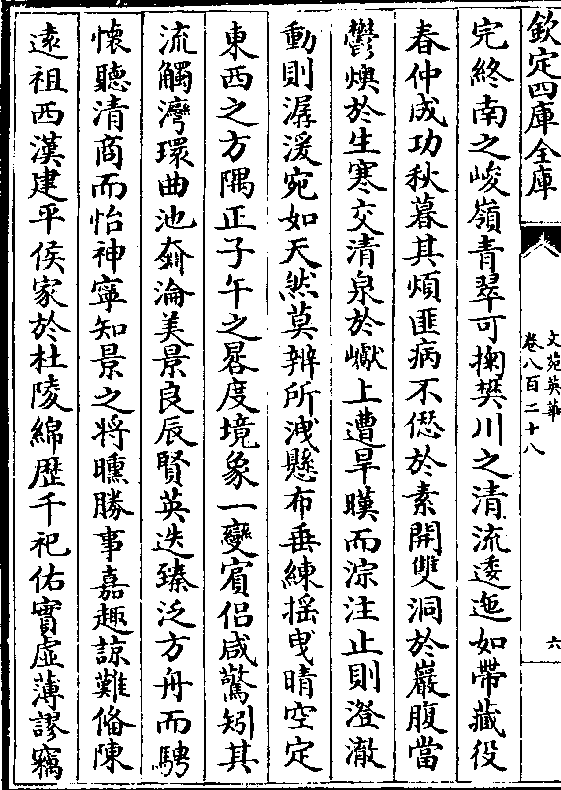 欽定四庫全書
文苑英華
卷八百二十八
六
完終南之峻嶺青翠可掬樊川之清流逶迤如帶蔵役
春仲成功秋暮其煩匪病不愆於素開雙洞於巖腹當
鬱燠於生寒交清泉於巘上遭旱暵而淙注止則澄澈
動則潺湲宛如天然莫辨所洩懸布垂練揺曳晴空定
東西之方隅正子午之晷度境象一變賓侣咸驚矧其
流觴灣環曲池奫淪美景良辰賢英迭臻泛方舟而騁
懷聽清商而怡神寧知景之将曛勝事嘉趣諒難俻陳
逺祖西漢建平侯家於杜陵綿歴千祀佑實虚薄謬竊